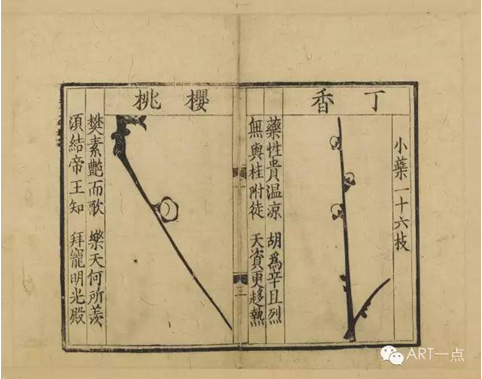 小蘂一十六枝
丁香
藥性貴温凉 胡爲辛且烈
無與桂附徒 天資更趍熱
櫻桃
樊素艷而歌 樂天何所羨
須結帝王知 拜寵明光殿
ART一点